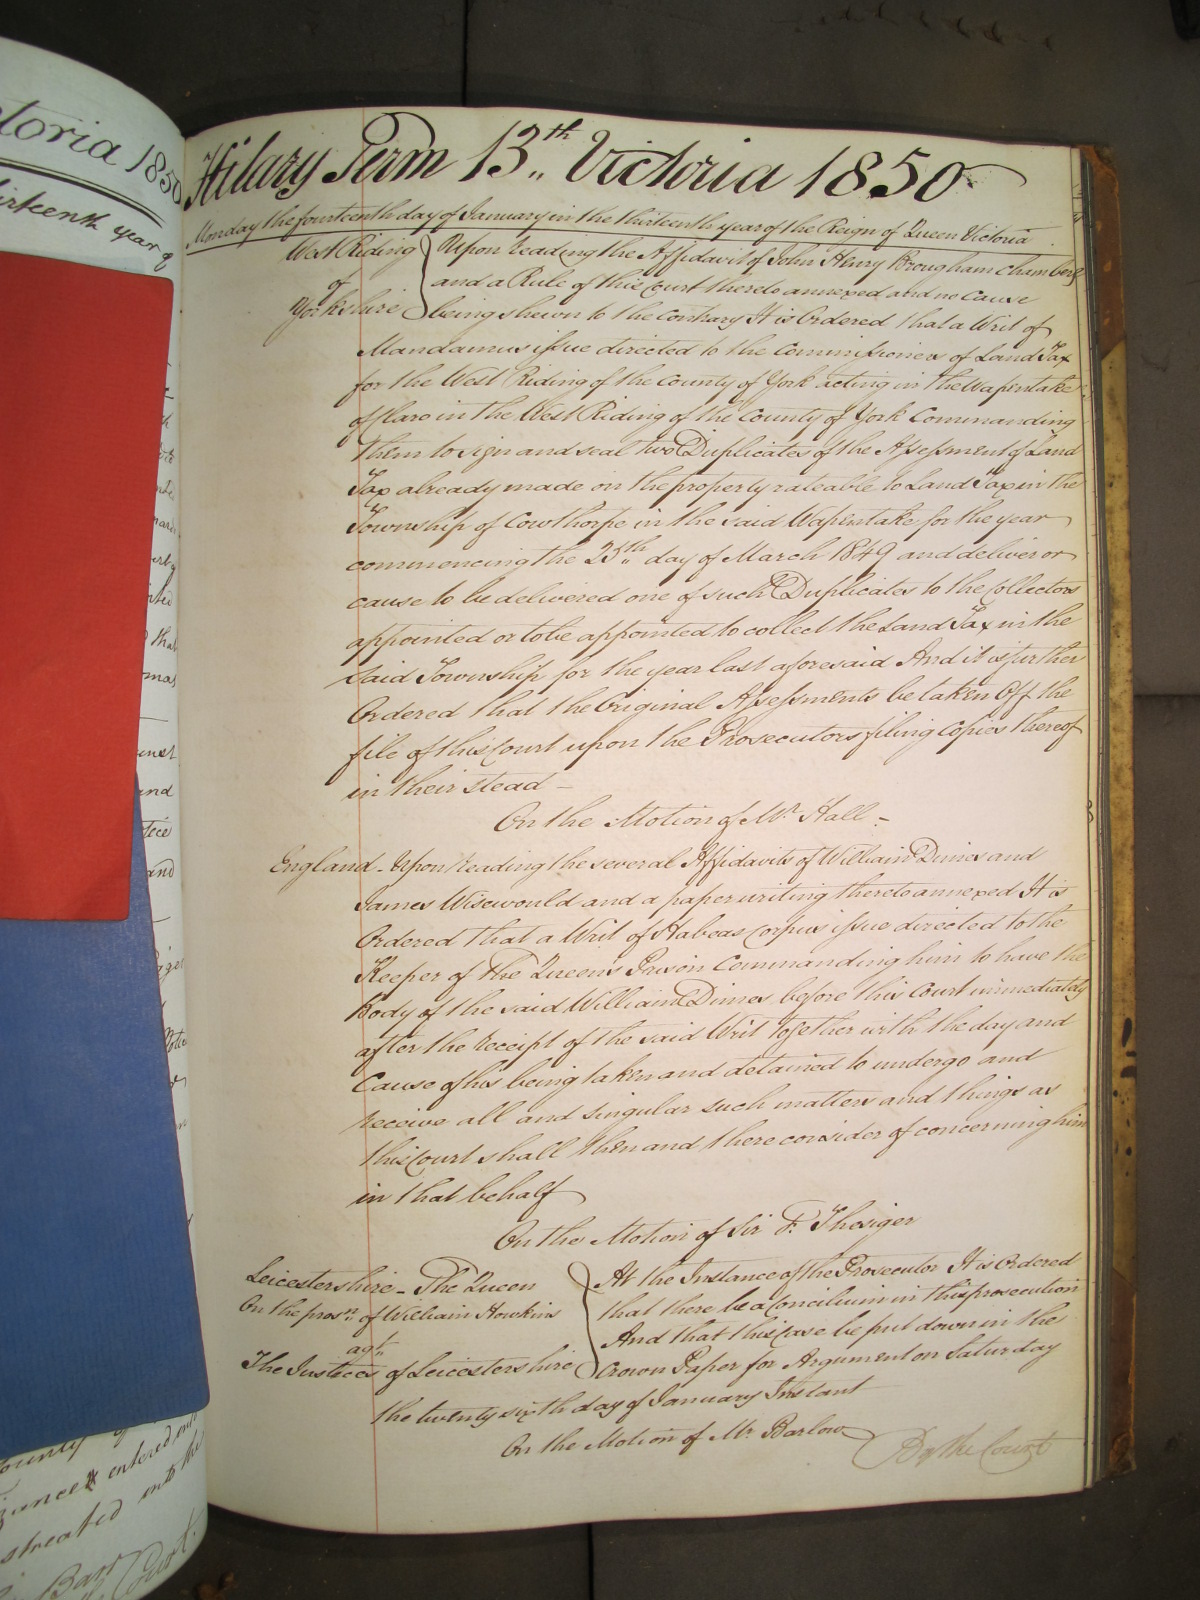 Hilary Term 13th Victoria 1850
Monday the fourteenth day of January in the thirteenth year of the Reign of Queen Victoria
West Riding of Yorkshire } Upon reading the Affidavit of John Henry Brougham Chambers
and a Rule of this Court thereto annexed and no cause
being shewn to the contrary It is Ordered that a Writ of
Mandamus issue directed to the Commissioners of Land Tax
for the West Riding of the County of York acting in the Wapentake
of Claro in the West Riding of the County of York Commanding
them to sign and seal two Duplicates of the Assessment of Land
Tax already made on the property rateable to Land Tax in the
Township of Cowthorpe in the said Wapentake for the year
commencing the 25th day of March 1849 and deliver or
cause to be delivered one of such Duplicates to the Collectors
appointed or to be appointed to collect the Land Tax in the
said Township for the year last aforesaid And it is further
Ordered that the Original Assessments be taken Off the
file of this Court upon the Prosecutors filing Copies thereof
in their stead –
On the Motion of Mr Hall –
England – Upon reading the several Affidavits of William Dimes and
James Wisewould and a paper writing thereto annexed It is
Ordered that a Writ of Habeas Corpus issue directed to the
Keeper of the Queen's Prison Commanding him to have the
body of the said William Dimes before this Court immediately
after the receipt of the said Writ together with the day and
Cause of his being taken and detained to undergo and
receive all and singular such matters and things as
this Court shall then and there consider of concerning him
in that behalf
On the Motion of Sir F. Thesiger
Leicestershire – The Queen } At the Instance of the Prosecutor It is Ordered
On the prosn of William Hawkins that there be a Concilium in this prosecution
agt And that this Case be put down in the
The Justices of Leicestershire Crown Paper for Argument on Saturday
the twenty sixth day of January Instant
On the Motion of Mr Barlow
By the Court